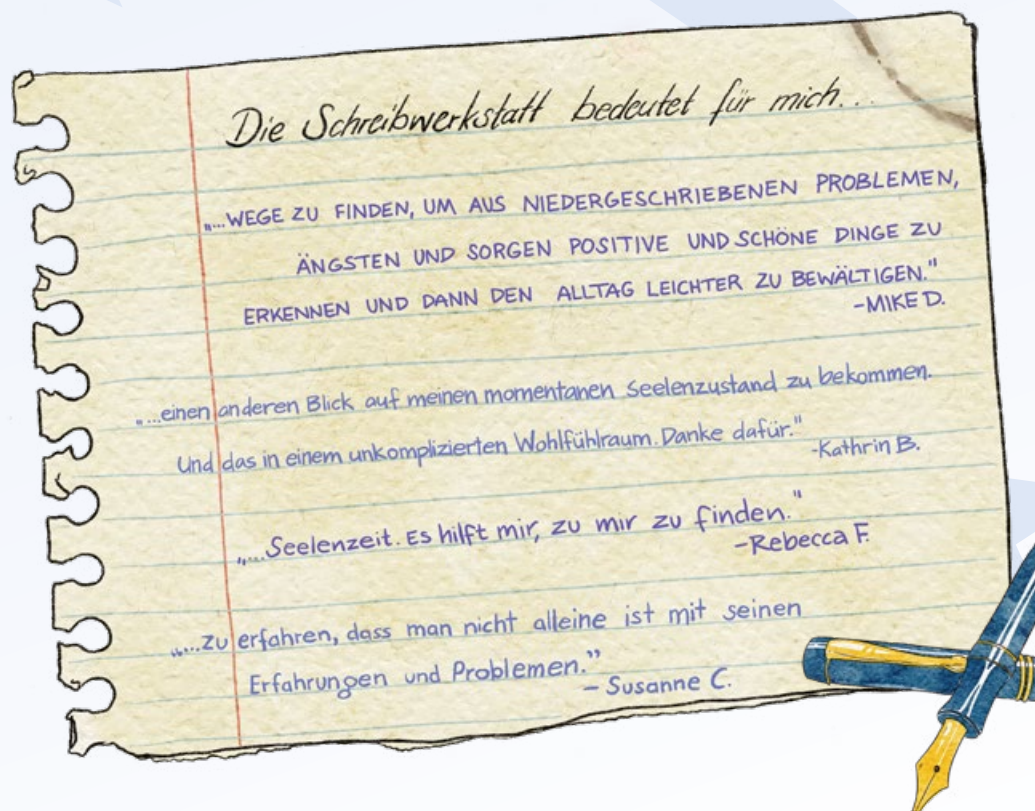 Die Schreibwerkstatt bedeutet für mich...
„...WEGE ZU FINDEN, UM AUS NIEDERGESCHRIEBENEN PROBLEMEN,
ÄNGSTEN UND SORGEN POSITIVE UND SCHÖNE DINGE ZU
ERKENNEN UND DANN DEN ALLTAG LEICHTER ZU BEWÄLTIGEN."
-MIKE D.
„...einen anderen Blick auf meinen momentanen Seelenzustand zu bekommen.
Und das in einem unkomplizierten Wohlfühlraum. Danke dafür."
-Kathrin B.
„...Seelenzeit. Es hilft mir, zu mir zu finden."
-Rebecca F.
„...zu erfahren, dass man nicht alleine ist mit seinen
Erfahrungen und Problemen.”
- Susanne C.